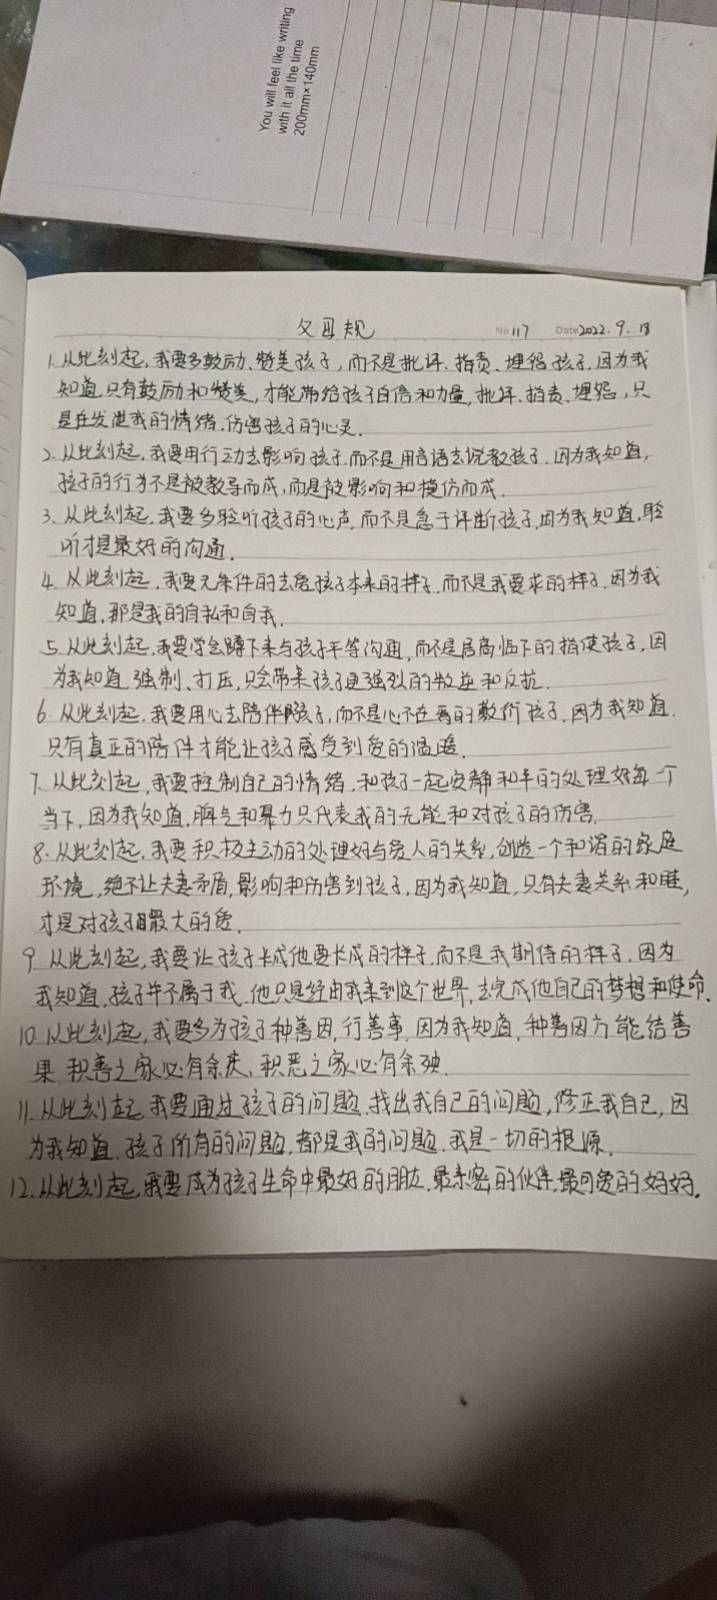 You will feel like writing
with it all the time
200mm×140mm
父母规
No 117 Date 2022. 9. 13
1. 从此刻起,我要多鼓励、赞美孩子,而不是批评、指责、埋怨孩子,因为我
知道,只有鼓励和赞美,才能带给孩子自信和力量,批评、指责、埋怨,只
是在发泄我的情绪,伤害孩子的心灵.
2. 从此刻起,我要用行动去影响孩子.而不是用言语去说教孩子.因为我知道,
孩子的行为不是被教导而成,而是被影响和模仿而成.
3. 从此刻起.我要多聆听孩子的心声.而不是急于评断孩子,因为我知道,聆
听才是最好的沟通.
4. 从此刻起.我要无条件的去爱孩子本来的样子.而不是我要求的样子.因为我
知道,那是我的自私和自我.
5. 从此刻起,我要学会蹲下来与孩子平等沟通,而不是居高临下的指使孩子,因
为我知道 强制、打压,只会带来孩子更强烈的叛逆和反抗.
6. 从此刻起.我要用心去陪伴孩子,而不是心不在焉的敷衍孩子.因为我知道.
只有真正的陪伴才能让孩子感受到爱的温暖.
7. 从此刻起,我要控制自己的情绪,和孩子一起安静和平的处理好每一个
当下,因为我知道,脾气和暴力只代表我的无能和对孩子的伤害.
8. 从此刻起,我要积极主动的处理好与爱人的关系,创造一个和谐的家庭
环境,绝不让夫妻矛盾,影响和伤害到孩子,因为我知道,只有夫妻关系和睦,
才是对孩子最大的爱.
9 从此刻起,我要让孩子长成他要长成的样子.而不是我期待的样子.因为
我知道,孩子并不属于我.他只是经由我来到这个世界,去完成他自己的梦想和使命.
10. 从此刻起,我要多为孩子种善因,行善事.因为我知道,种善因方能结善
果,积善之家必有余庆、积恶之家必有余殃.
11. 从此刻起,我要通过孩子的问题,找出我自己的问题,修正我自己,因
为我知道,孩子所有的问题,都是我的问题.我是一切的根源.
12. 从此刻起,我要成为孩子生命中最好的朋友.最亲密的伙伴.最可爱的妈妈.